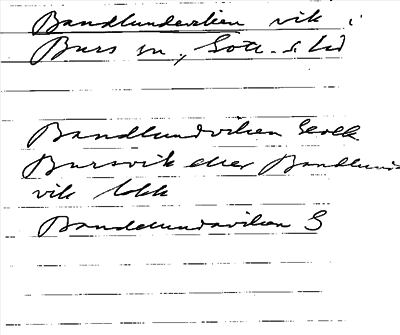 Bandlundviken vik i
Burs sn, Gotl. s. hd
Bandlundviken Geolk
Bursvik eller Bandlunds
vik lokk
Bandelundaviken S